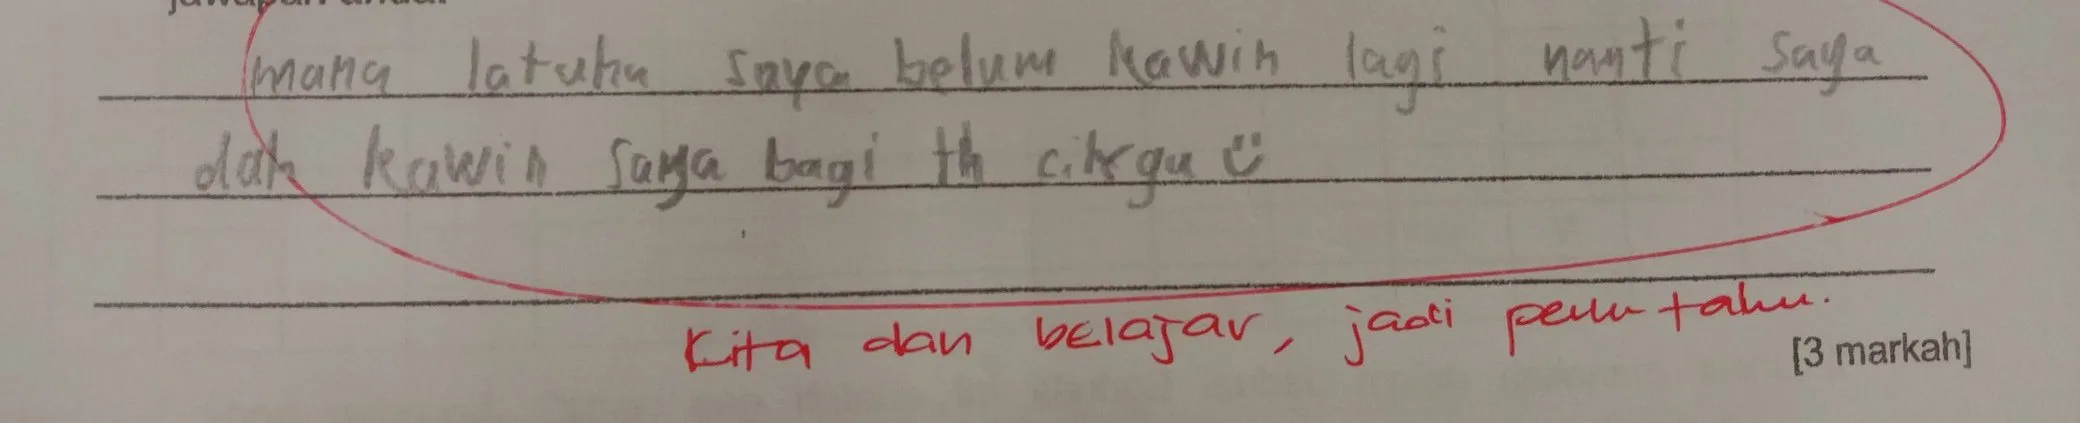 jawapan anda.
mana latuhu saya belum kawin lagi nanti saya
dah kawin saya bagi th cikgu
Kita dan belajar, jadi perlu tahu.
[3 markah]